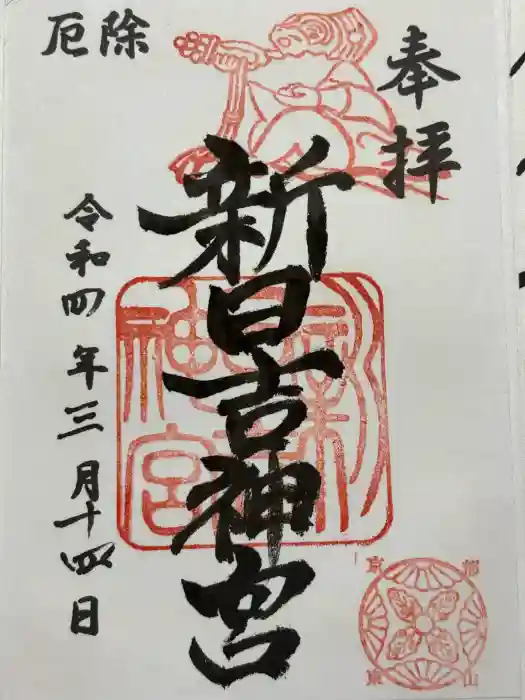 奉拝
新日吉神宮
厄除
令和四年三月十四日
新日吉神宮
京都
東山